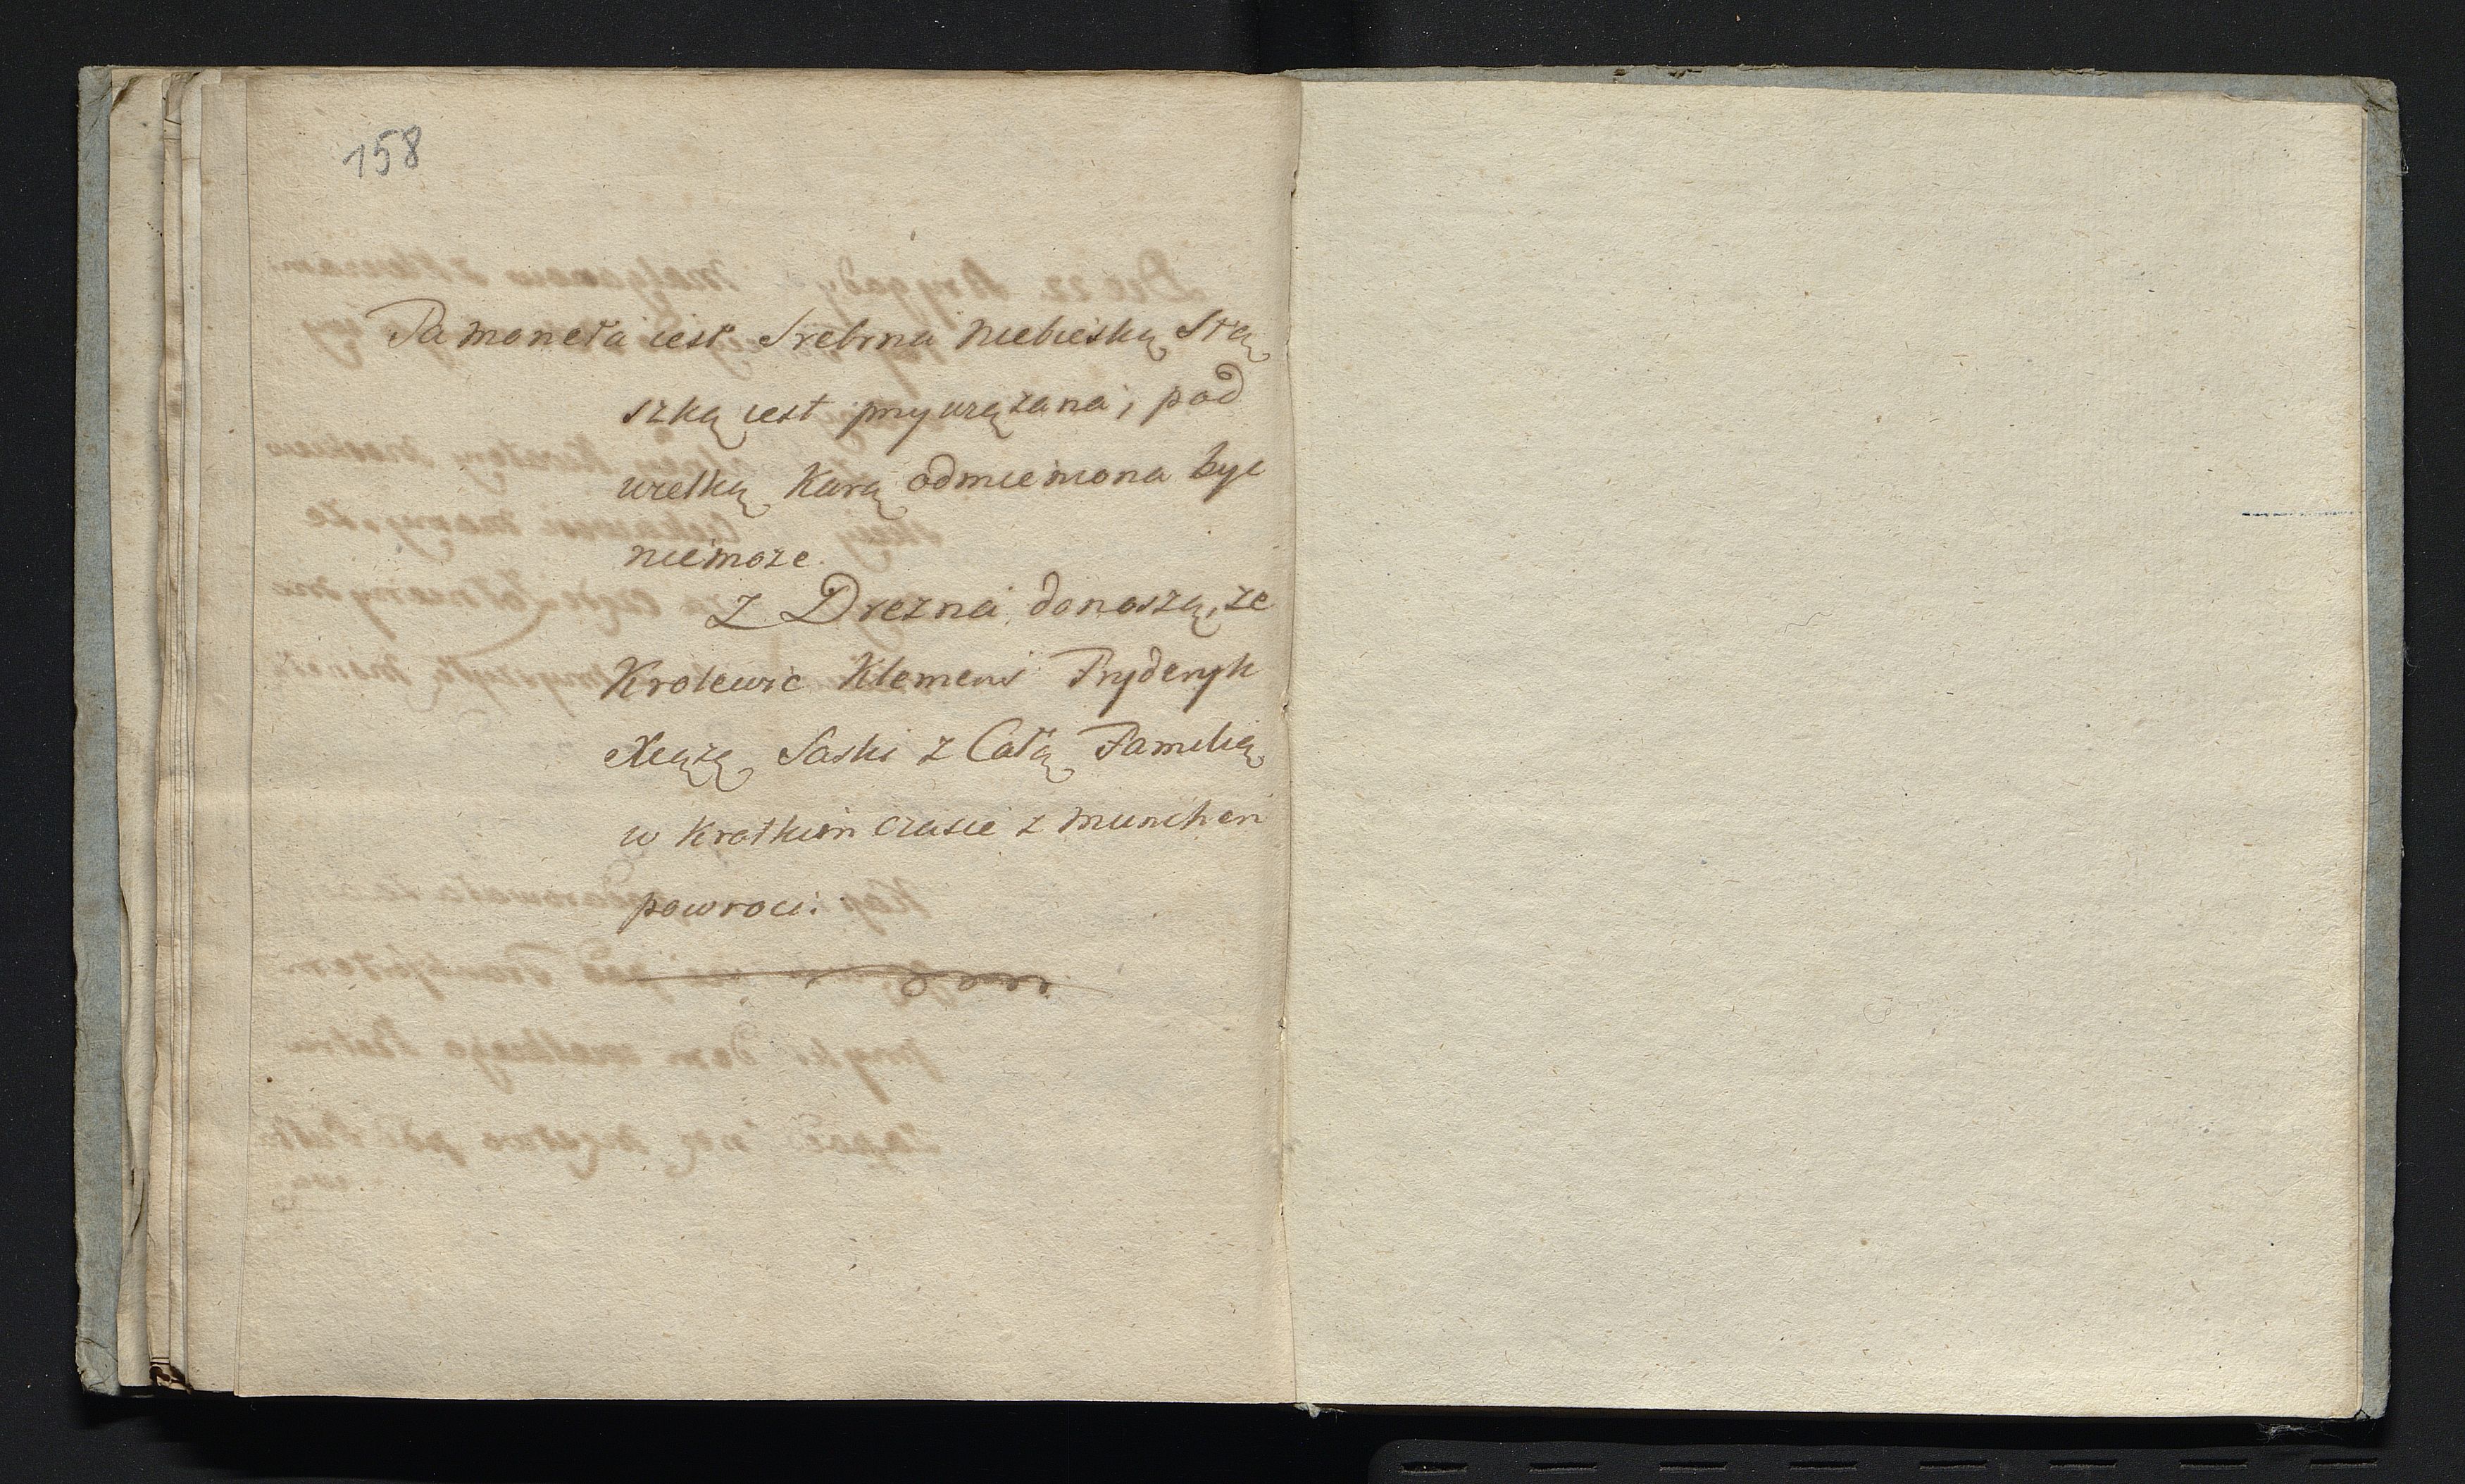 158
Ta moneta iest Srebrna niebieską Stą
szką iest przywiązana, pod
wielką Karą odmieniona byc
niemoze.
Z Drezna donoszą, ze
Krolewic Klemens Fryderyk
Xcążę Saski z Całą Familią
w krotkim czasie z munchen
powroci.